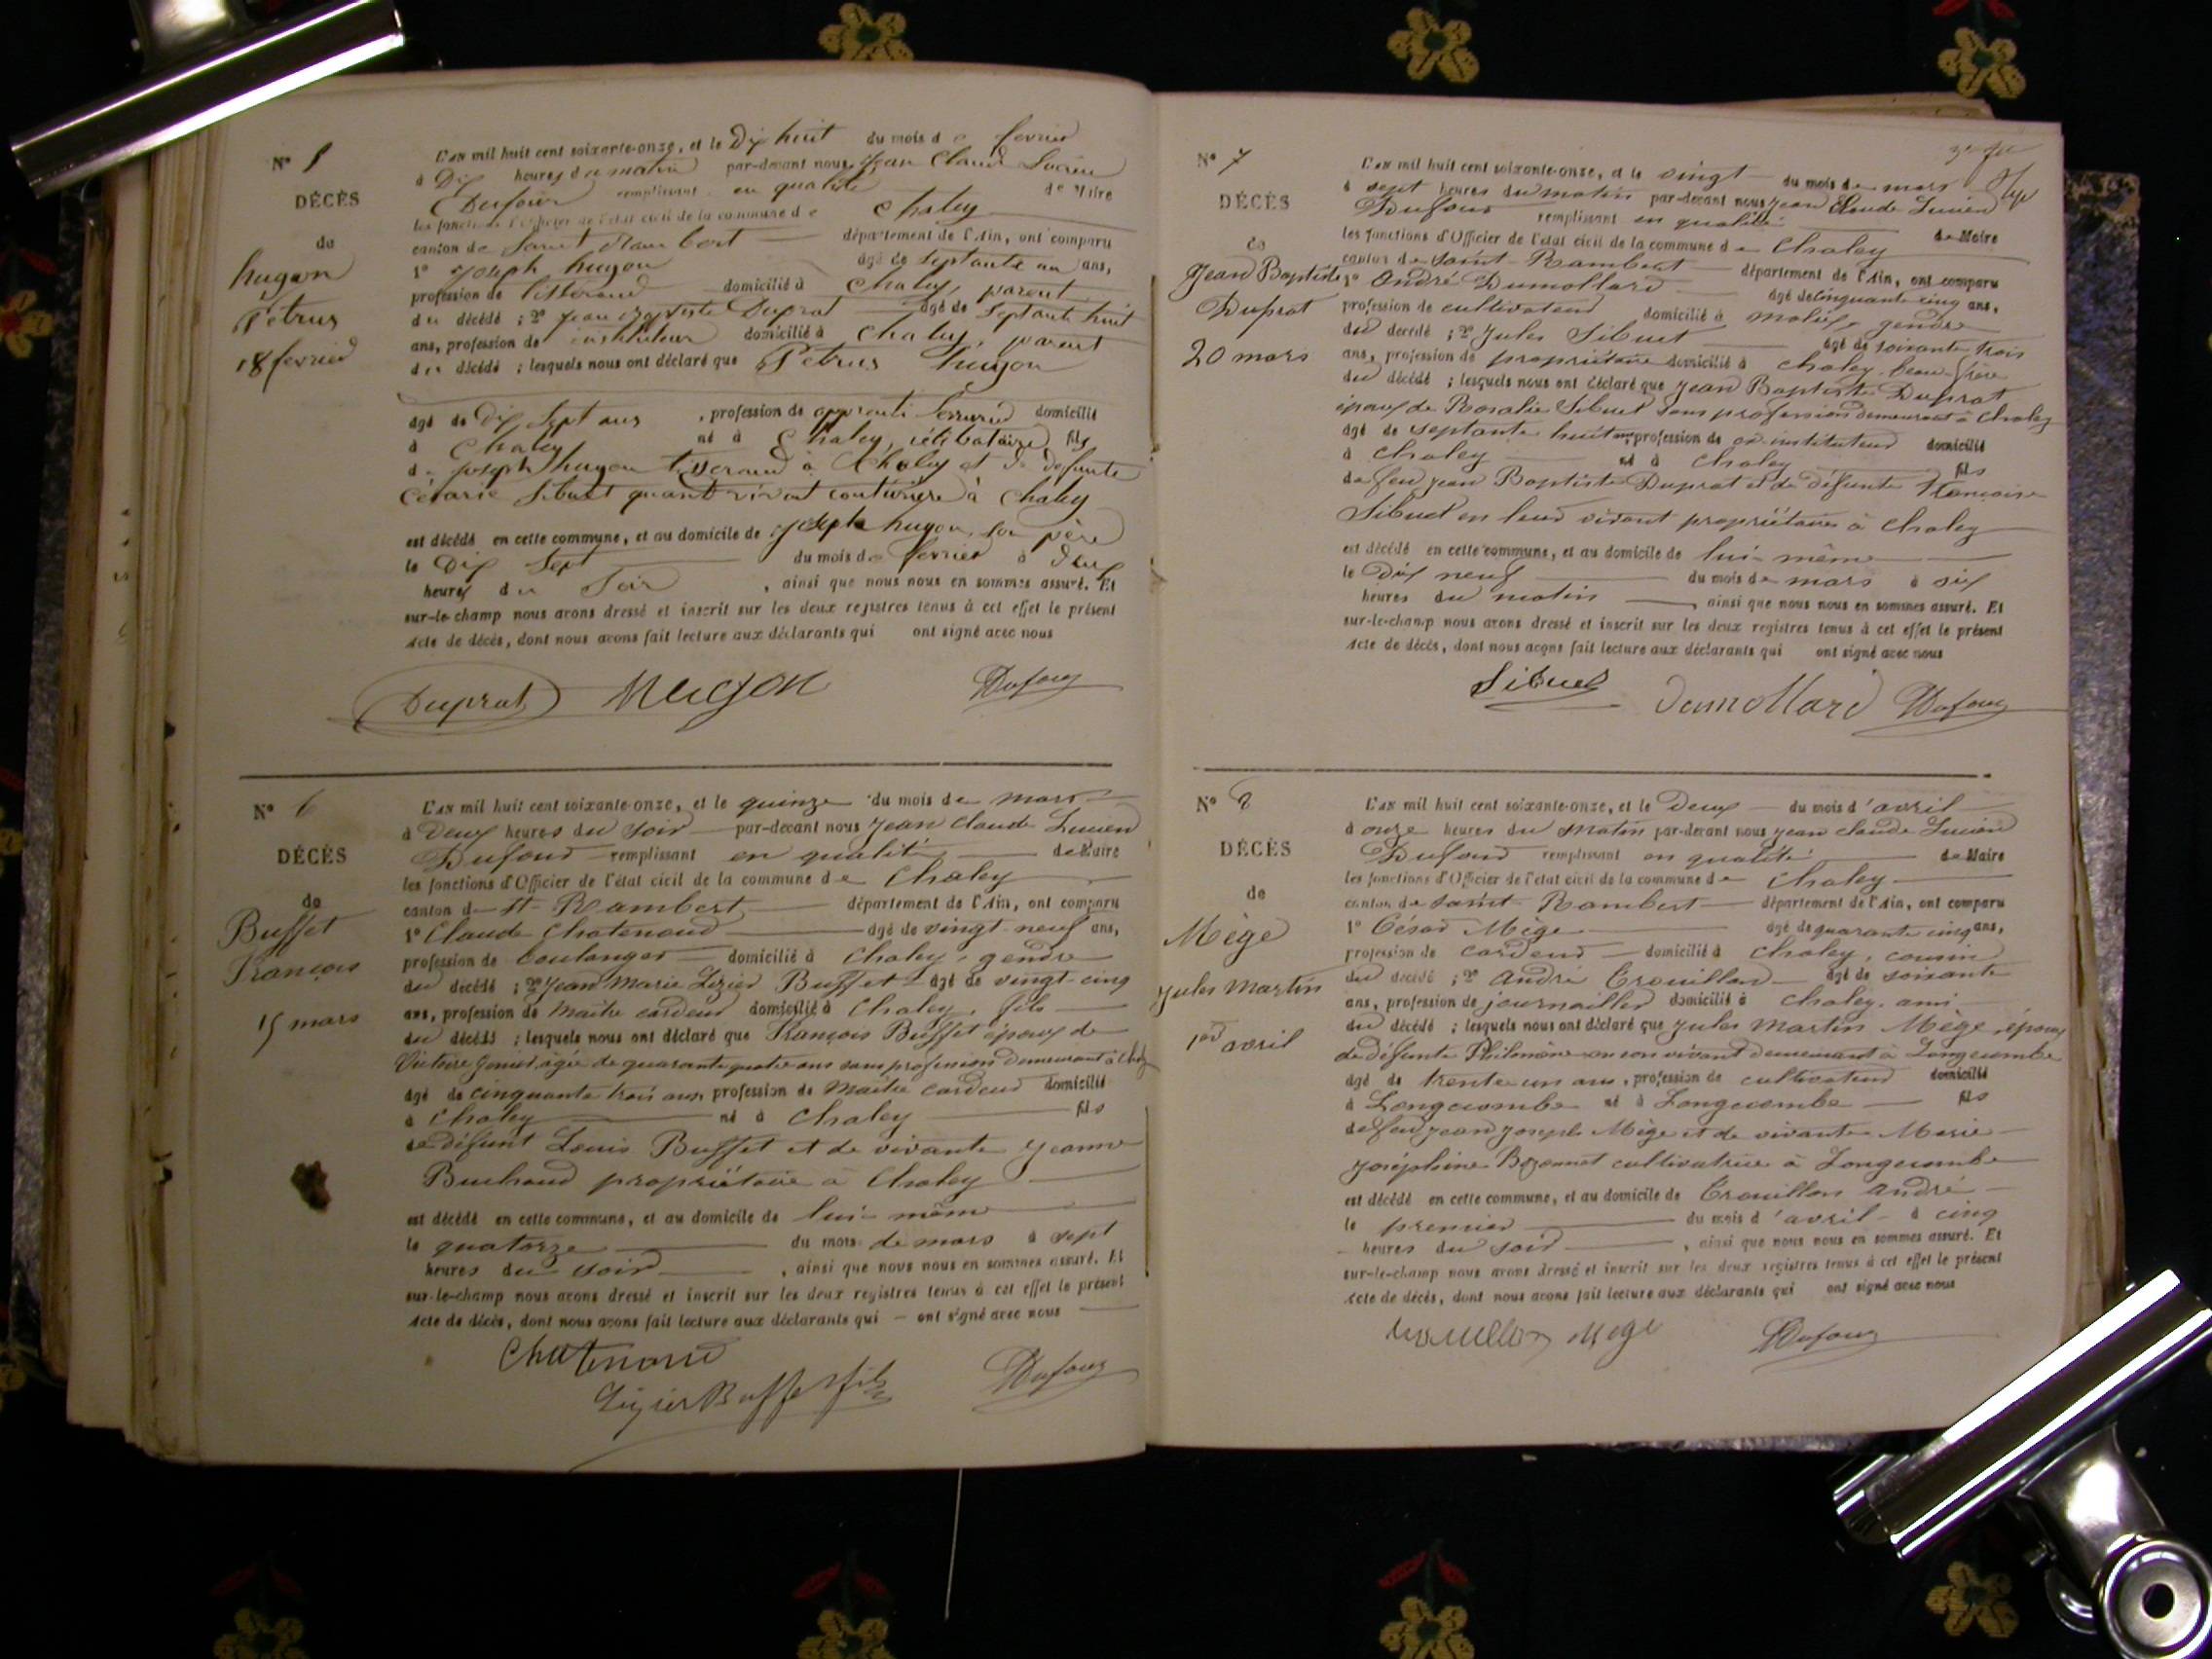 N° 5
DÉCÈS
de
hugon
Pétrus
18 fevrier
L'AN mil huit cent soixante-onze, et le Dix huit du mois de fevrier
à Dix heures du matin par-devant nous Jean Claude Lucien
Dufour remplissant en qualité de Maire
les fonctions d'Officier de l'état civil de la commune de Chaley
canton de Saint Rambert département de l'Ain, ont comparu
1° Joseph hugon âgé de Septante un ans,
profession de tisserand domicilié à Chaley, parent
du décédé ; 2° Jean Baptiste Duprat âgé de Septante huit
ans, profession de instituteur domicilié à Chaley, parent
du décédé ; lesquels nous ont déclaré que Pétrus hugon
âgé de Dix Sept ans , profession de apprenti Serrurier domicilié
à Chaley né à Chaley, célibataire, fils
de Joseph hugon tisserand à Chaley et de defunte
Césarie Sibuet quand vivait couturière à Chaley
est décédé en cette commune, et au domicile de Joseph hugon, son père
le Dix Sept du mois de fevrier à Deux
heures du Soir , ainsi que nous nous en sommes assuré. Et
sur-le-champ nous avons dressé et inscrit sur les deux registres tenus à cet effet le présent
Acte de décès, dont nous avons fait lecture aux déclarants qui ont signé avec nous
Duprat Hugon Dufour
N° 6
DÉCÈS
de
Buffet
François
15 mars
L'AN mil huit cent soixante-onze, et le quinze du mois de mars
à Deux heures du soir par-devant nous Jean Claude Lucien
Dufour remplissant en qualité de Maire
les fonctions d'Officier de l'état civil de la commune de Chaley
canton de St Rambert département de l'Ain, ont comparu
1° Claude Chatenoud âgé de vingt-neuf ans,
profession de boulanger domicilié à Chaley, gendre
du décédé ; 2° Jean Marie Lizier Buffet âgé de vingt-cinq
ans, profession de maître cardeur domicilié à Chaley, fils
du décédé ; lesquels nous ont déclaré que François Buffet époux de
Victoire âgée de quarante quatre ans sans profession demeurant à Chaley
âgé de cinquante trois ans, profession de maître cardeur domicilié
à Chaley né à Chaley fils
de défunt Louis Buffet et de vivante Jeanne
propriétaire à Chaley
est décédé en cette commune, et au domicile de lui-même
le quatorze du mois de mars à sept
heures du soir , ainsi que nous nous en sommes assuré. Et
sur-le-champ nous avons dressé et inscrit sur les deux registres tenus à cet effet le présent
Acte de décès, dont nous avons fait lecture aux déclarants qui ont signé avec nous
Chatenoud
Lizier Buffet fils Dufour
N° 7
DÉCÈS
de
Jean Baptiste
Duprat
20 mars
L'AN mil huit cent soixante-onze, et le vingt du mois de mars
à sept heures du matin par-devant nous Jean Claude Lucien
Dufour remplissant en qualité de Maire
les fonctions d'Officier de l'état civil de la commune de Chaley
canton de Saint-Rambert département de l'Ain, ont comparu
1° André Dumollard âgé de cinquante cinq ans,
profession de cultivateur domicilié à gendre
du décédé ; 2° Jules Sibuet âgé de soixante trois
ans, profession de propriétaire domicilié à Chaley, beau-frère
du décédé ; lesquels nous ont déclaré que Jean Baptiste Duprat
époux de Rosalie Sibuet sans profession demeurant à Chaley
âgé de septante huit ans, profession de ex-instituteur domicilié
à Chaley né à Chaley fils
de feu Jean Baptiste Duprat et de défunte Françoise
Sibuet en leur vivant propriétaires à Chaley
est décédé en cette commune, et au domicile de lui-même
le Dix neuf du mois de mars à six
heures du matin , ainsi que nous nous en sommes assuré. Et
sur-le-champ nous avons dressé et inscrit sur les deux registres tenus à cet effet le présent
Acte de décès, dont nous avons fait lecture aux déclarants qui ont signé avec nous
Sibuet Dumollard Dufour
N° 8
DÉCÈS
de
Mège
Jules Martin
1er avril
L'AN mil huit cent soixante-onze, et le Deux du mois d'avril
à onze heures du matin par-devant nous Jean Claude Lucien
Dufour remplissant en qualité de Maire
les fonctions d'Officier de l'état civil de la commune de Chaley
canton de Saint-Rambert département de l'Ain, ont comparu
1° César Mège âgé de quarante cinq ans,
profession de cardeur domicilié à Chaley, cousin
du décédé ; 2° André Trouillon âgé de soixante
ans, profession de journaillier domicilié à Chaley, ami
du décédé ; lesquels nous ont déclaré que Jules Martin Mège, époux
de défunte Philomène en son vivant demeurant à Longecombe
âgé de trente un ans, profession de cultivateur domicilié
à Longecombe né à Longecombe fils
de feu Jean Joseph Mège et de vivante Marie
Joséphine cultivatrice à Longecombe
est décédé en cette commune, et au domicile de Trouillon André
le premier du mois d'avril à cinq
heures du soir , ainsi que nous nous en sommes assuré. Et
sur-le-champ nous avons dressé et inscrit sur les deux registres tenus à cet effet le présent
Acte de décès, dont nous avons fait lecture aux déclarants qui ont signé avec nous
trouillon Mège Dufour